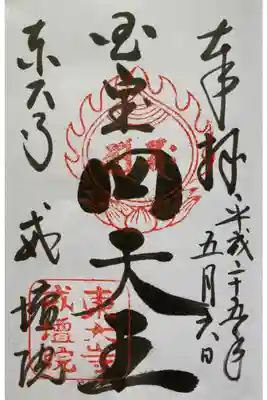 奉拝
平成二十五年
五月六日
国宝
四天王
東大寺 戒壇院
東大寺
戒壇院